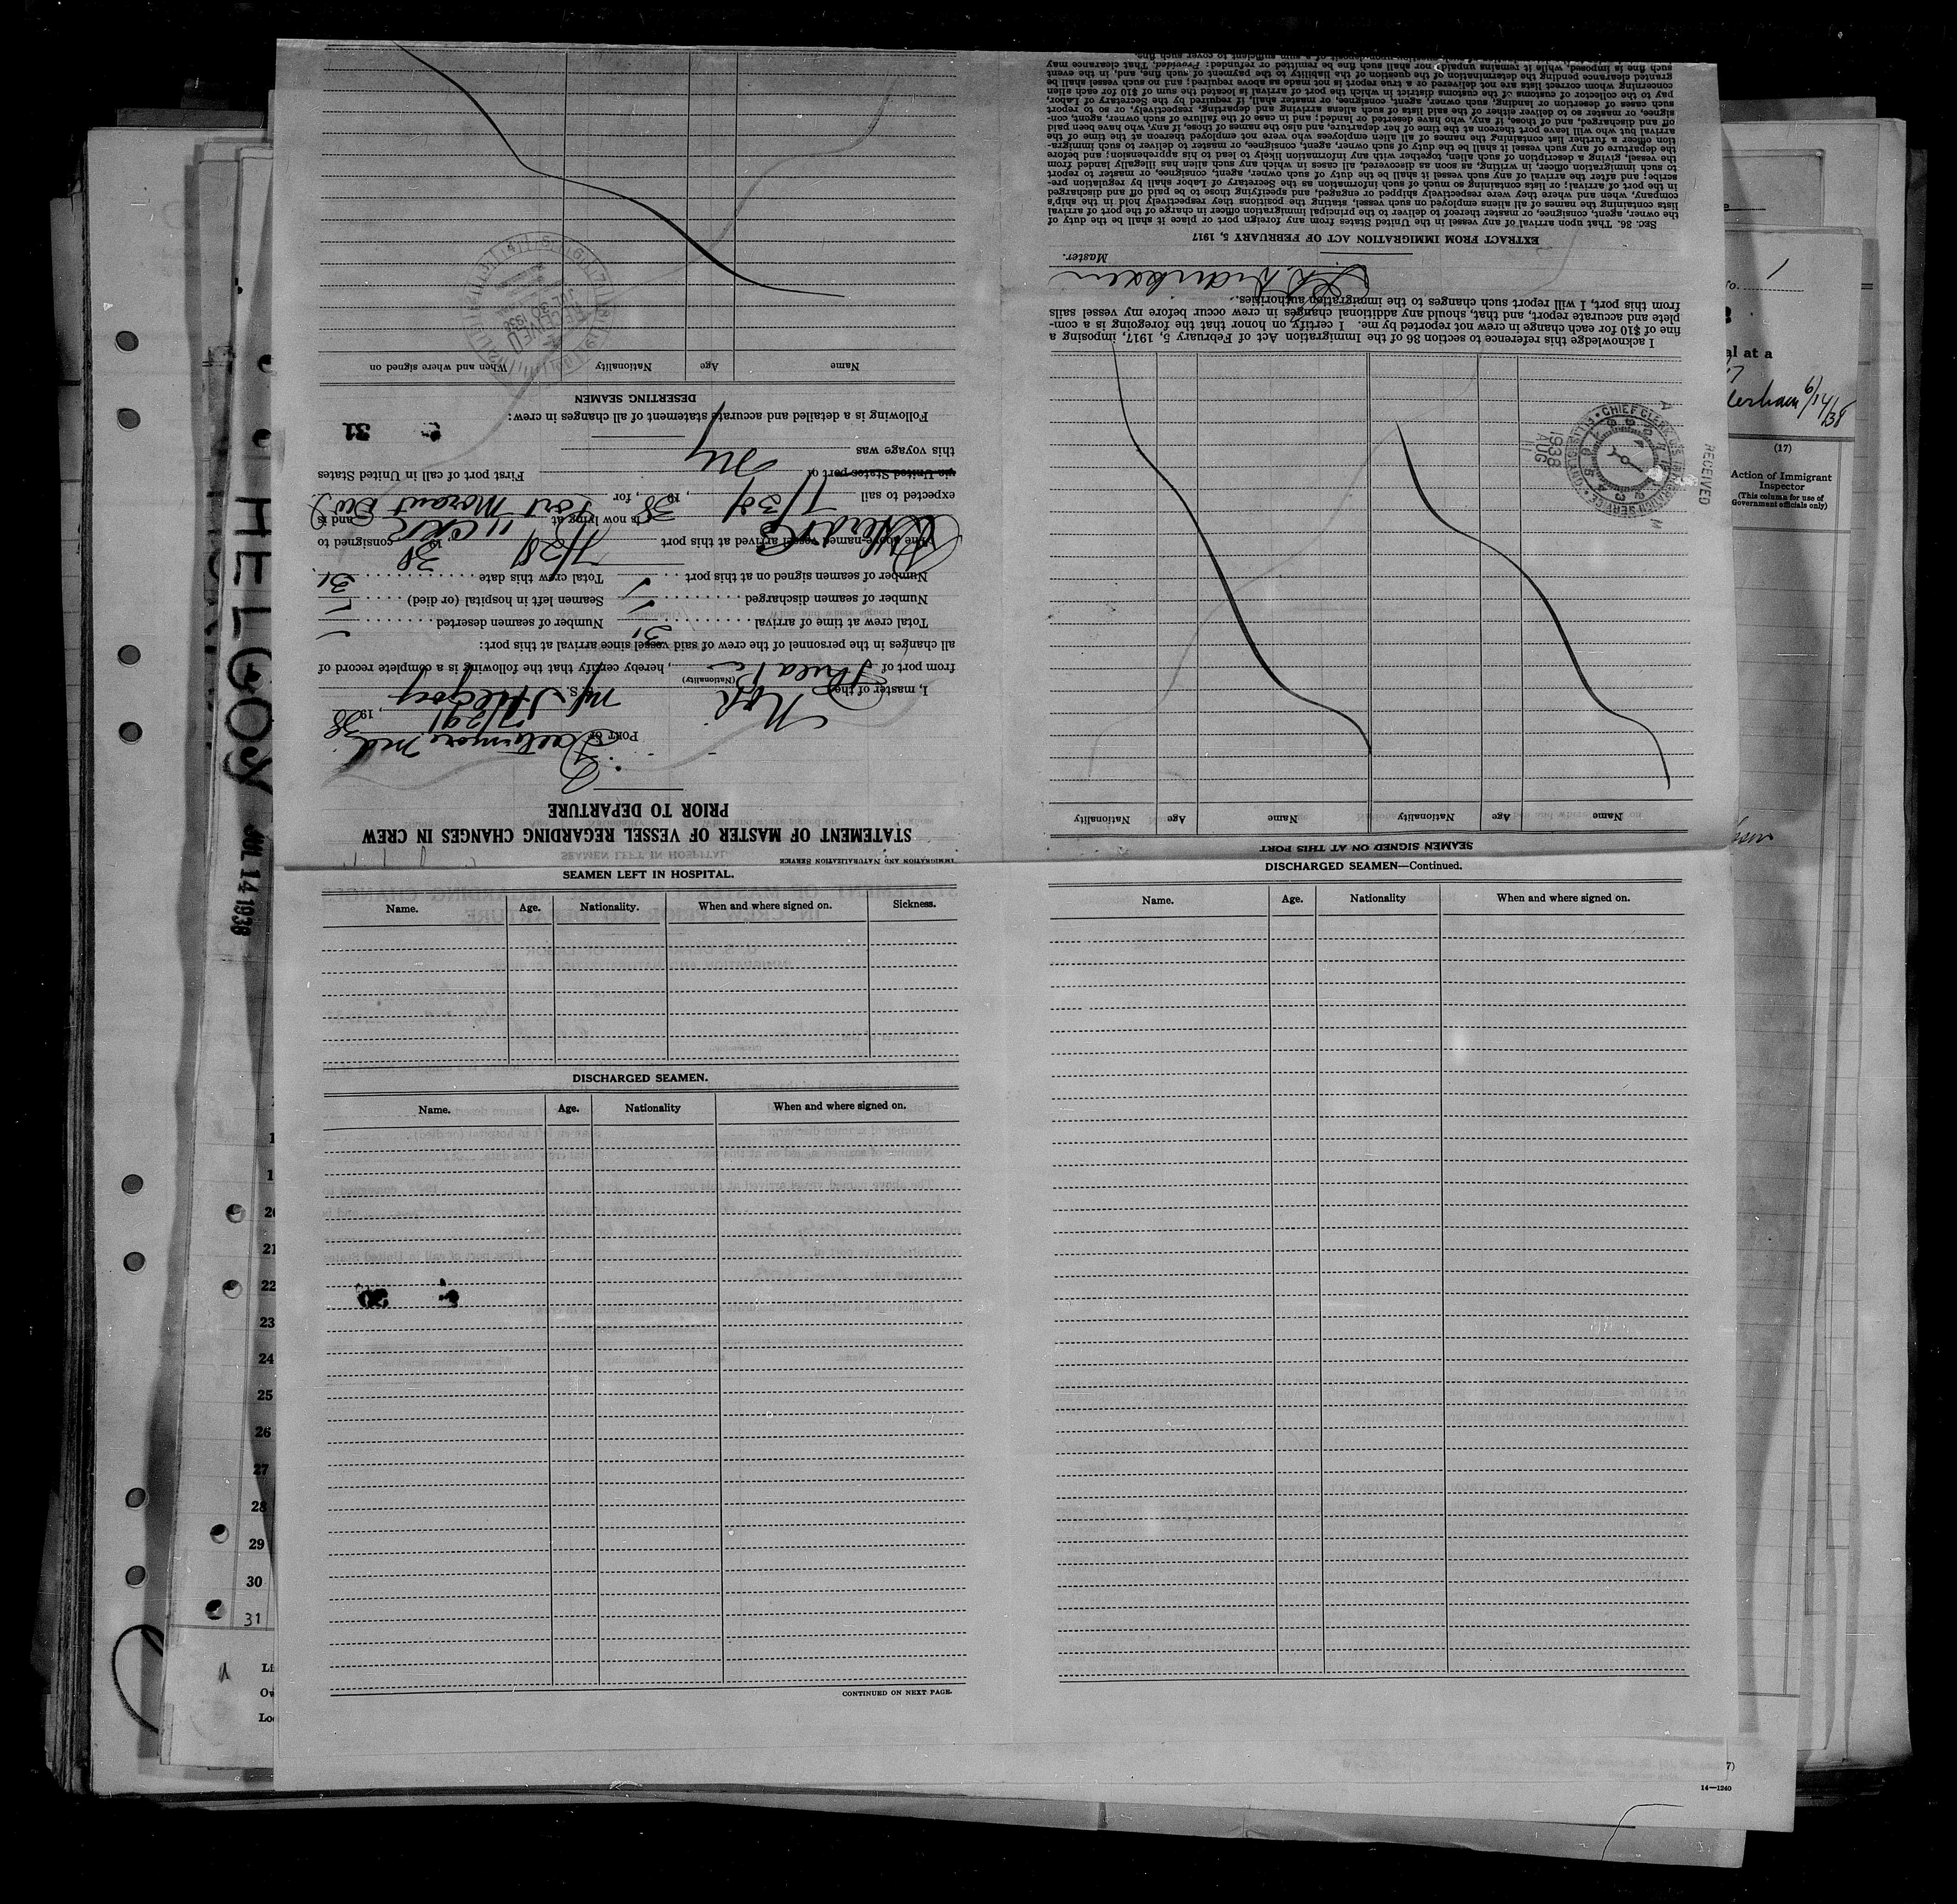 IMMIGRATION AND NATURALIZATION SERVICE
STATEMENT OF MASTER OF VESSEL REGARDING CHANGES IN CREW
PRIOR TO DEPARTURE
PORT OF Baltimore Md
7/29, 1938
I, master of the Nor M/S Helgoy
(Nationality)
from port of Phila Pa, hereby certify that the following is a complete record of
all changes in the personnel of the crew of said vessel since arrival at this port:
Total crew at time of arrival 31 Number of seamen deserted
Number of seamen discharged Seamen left in hospital (or died)
Number of seamen signed on at this port Total crew this date 31
The above-named vessel arrived at this port 7/28 1938 consigned to
is now lying at and is
expected to sail 7/30, 1938, for Port Morant
via United States port of First port of call in United States
this voyage was NY
Following is a detailed and accurate statement of all changes in crew:
31
DESERTING SEAMEN
Name Age Nationality When and where signed on
RECEIVED
JUL 30 1938
SEAMEN SIGNED ON AT THIS PORT
Name Age Nationality Name Age Nationality
RECEIVED
CHIEF CLERK U.S. IMMIGRATION SERVICE
AUG
1938
I acknowledge this reference to section 36 of the Immigration Act of February 5, 1917, imposing a
fine of $10 for each change in crew not reported by me. I certify on honor that the foregoing is a com-
plete and accurate report, and that, should any additional changes in crew occur before my vessel sails
from this port, I will report such changes to the immigration authorities.
Master.
EXTRACT FROM IMMIGRATION ACT OF FEBRUARY 5, 1917
SEC. 36. That upon arrival of any vessel in the United States from any foreign port or place it shall be the duty of
the owner, agent, consignee, or master thereof to deliver to the principal immigration officer in charge of the port of arrival
lists containing the names of all aliens employed on such vessel, stating the positions they respectively hold in the ship's
company, when and where they were respectively shipped or engaged, and specifying those to be paid off and discharged
in the port of arrival; or lists containing so much of such information as the Secretary of Labor shall by regulation pre-
scribe; and after the arrival of any such vessel it shall be the duty of such owner, agent, consignee, or master to report
to such immigration officer, in writing, as soon as discovered, all cases in which any such alien has illegally landed from
the vessel, giving a description of such alien, together with any information likely to lead to his apprehension; and before
the departure of any such vessel it shall be the duty of such owner, agent, consignee, or master to deliver to such immigra-
tion officer a further list containing the names of all alien employees who were not employed thereon at the time of the
arrival but who will leave port thereon at the time of her departure, and also the names of those, if any, who have been paid
off and discharged, and of those, if any, who have deserted or landed; and in case of the failure of such owner, agent, con-
signee, or master so to deliver either of the said lists of such aliens arriving and departing, respectively, or so to report
such cases of desertion or landing, such owner, agent, consignee, or master shall, if required by the Secretary of Labor,
pay to the collector of customs of the customs district in which the port of arrival is located the sum of $10 for each alien
concerning whom correct lists are not delivered or a true report is not made as above required; and no such vessel shall be
granted clearance pending the determination of the question of the liability to the payment of such fine, and, in the event
such fine is imposed, while it remains unpaid, nor shall such fine be remitted or refunded: Provided, That clearance may
SEAMEN LEFT IN HOSPITAL.
Name. Age. Nationality. When and where signed on. Sickness.
DISCHARGED SEAMEN.
Name. Age. Nationality When and where signed on.
CONTINUED ON NEXT PAGE.
DISCHARGED SEAMEN—Continued.
Name. Age. Nationality When and where signed on.
HELGOY
JUL 14 1938
20
21
22
23
24
25
26
27
28
29
30
31
al at a
6/14/38
(17)
Action of Immigrant
Inspector
(This column for use of
Government officials only)
14—1240